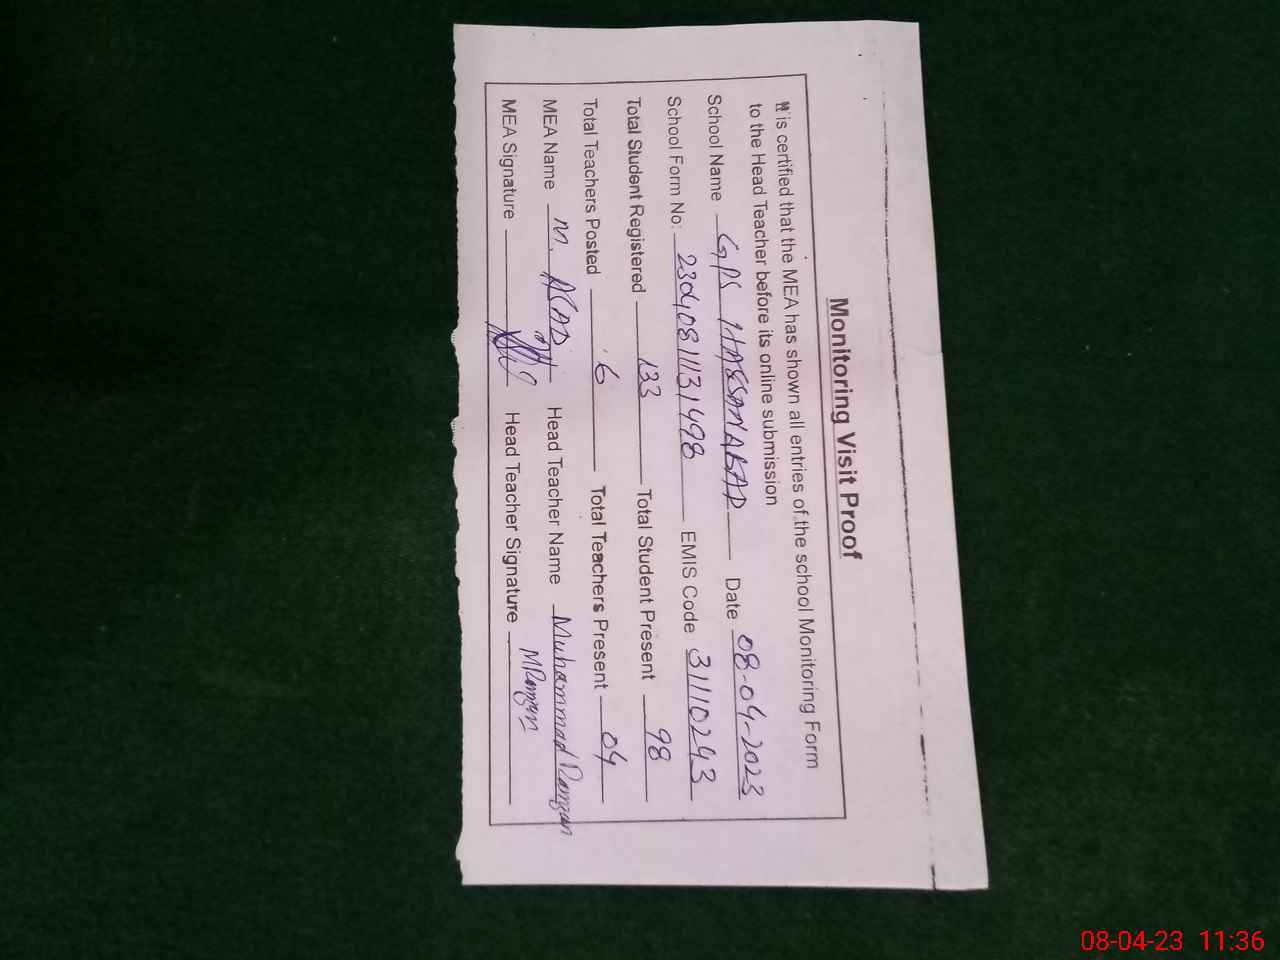 Monitoring Visit Proof
It is certified that the MEA has shown all entries of the school Monitoring Form
to the Head Teacher before its online submission
School Name GPS HASSANABAD Date 08-04-2023
School Form No: 2304081131498 EMIS Code 31110243
Total Student Registered 133 Total Student Present 98
Total Teachers Posted 6 Total Teachers Present 04
MEA Name M. ASAD Head Teacher Name Muhammad Ramzan
MEA Signature Head Teacher Signature MRamzan
08-04-23 11:36